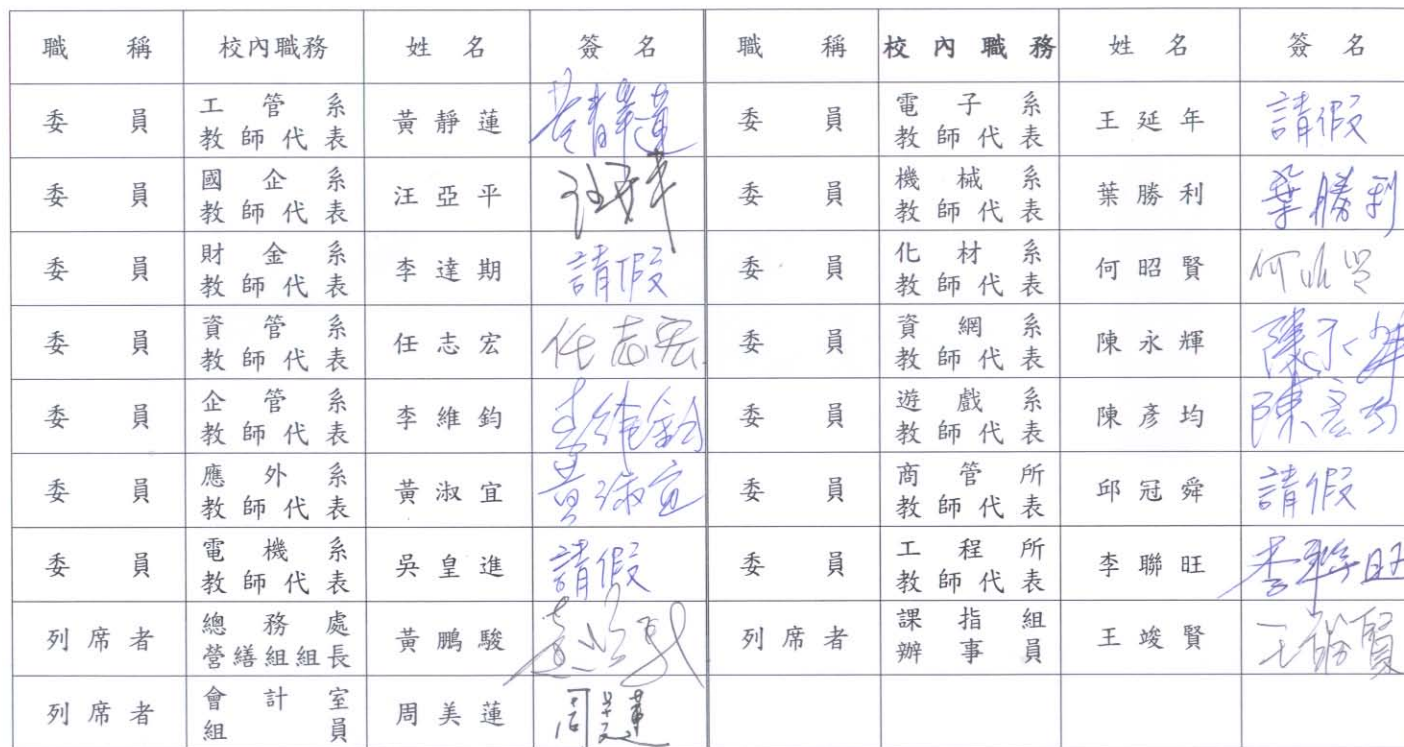 職稱 校內職務 姓名 簽名 職稱 校內職務 姓名 簽名
委員 工管系 教師代表 黃靜蓮 黃靜蓮 委員 電子系 教師代表 王延年 請假
委員 國企系 教師代表 汪亞平 汪亞平 委員 機械系 教師代表 葉勝利 葉勝利
委員 財金系 教師代表 李達期 請假 委員 化材系 教師代表 何昭賢 何昭賢
委員 資管系 教師代表 任志宏 任志宏 委員 資網系 教師代表 陳永輝 陳永輝
委員 企管系 教師代表 李維鈞 李維鈞 委員 遊戲系 教師代表 陳彥均 陳彥均
委員 應外系 教師代表 黃淑宜 黃淑宜 委員 商管所 教師代表 邱冠舜 請假
委員 電機系 教師代表 吳皇進 請假 委員 工程所 教師代表 李聯旺 李聯旺
列席者 總務處 營繕組組長 黃鵬駿 列席者 課指組 辦事員 王竣賢 王竣賢
列席者 會計室 組員 周美蓮 周美蓮